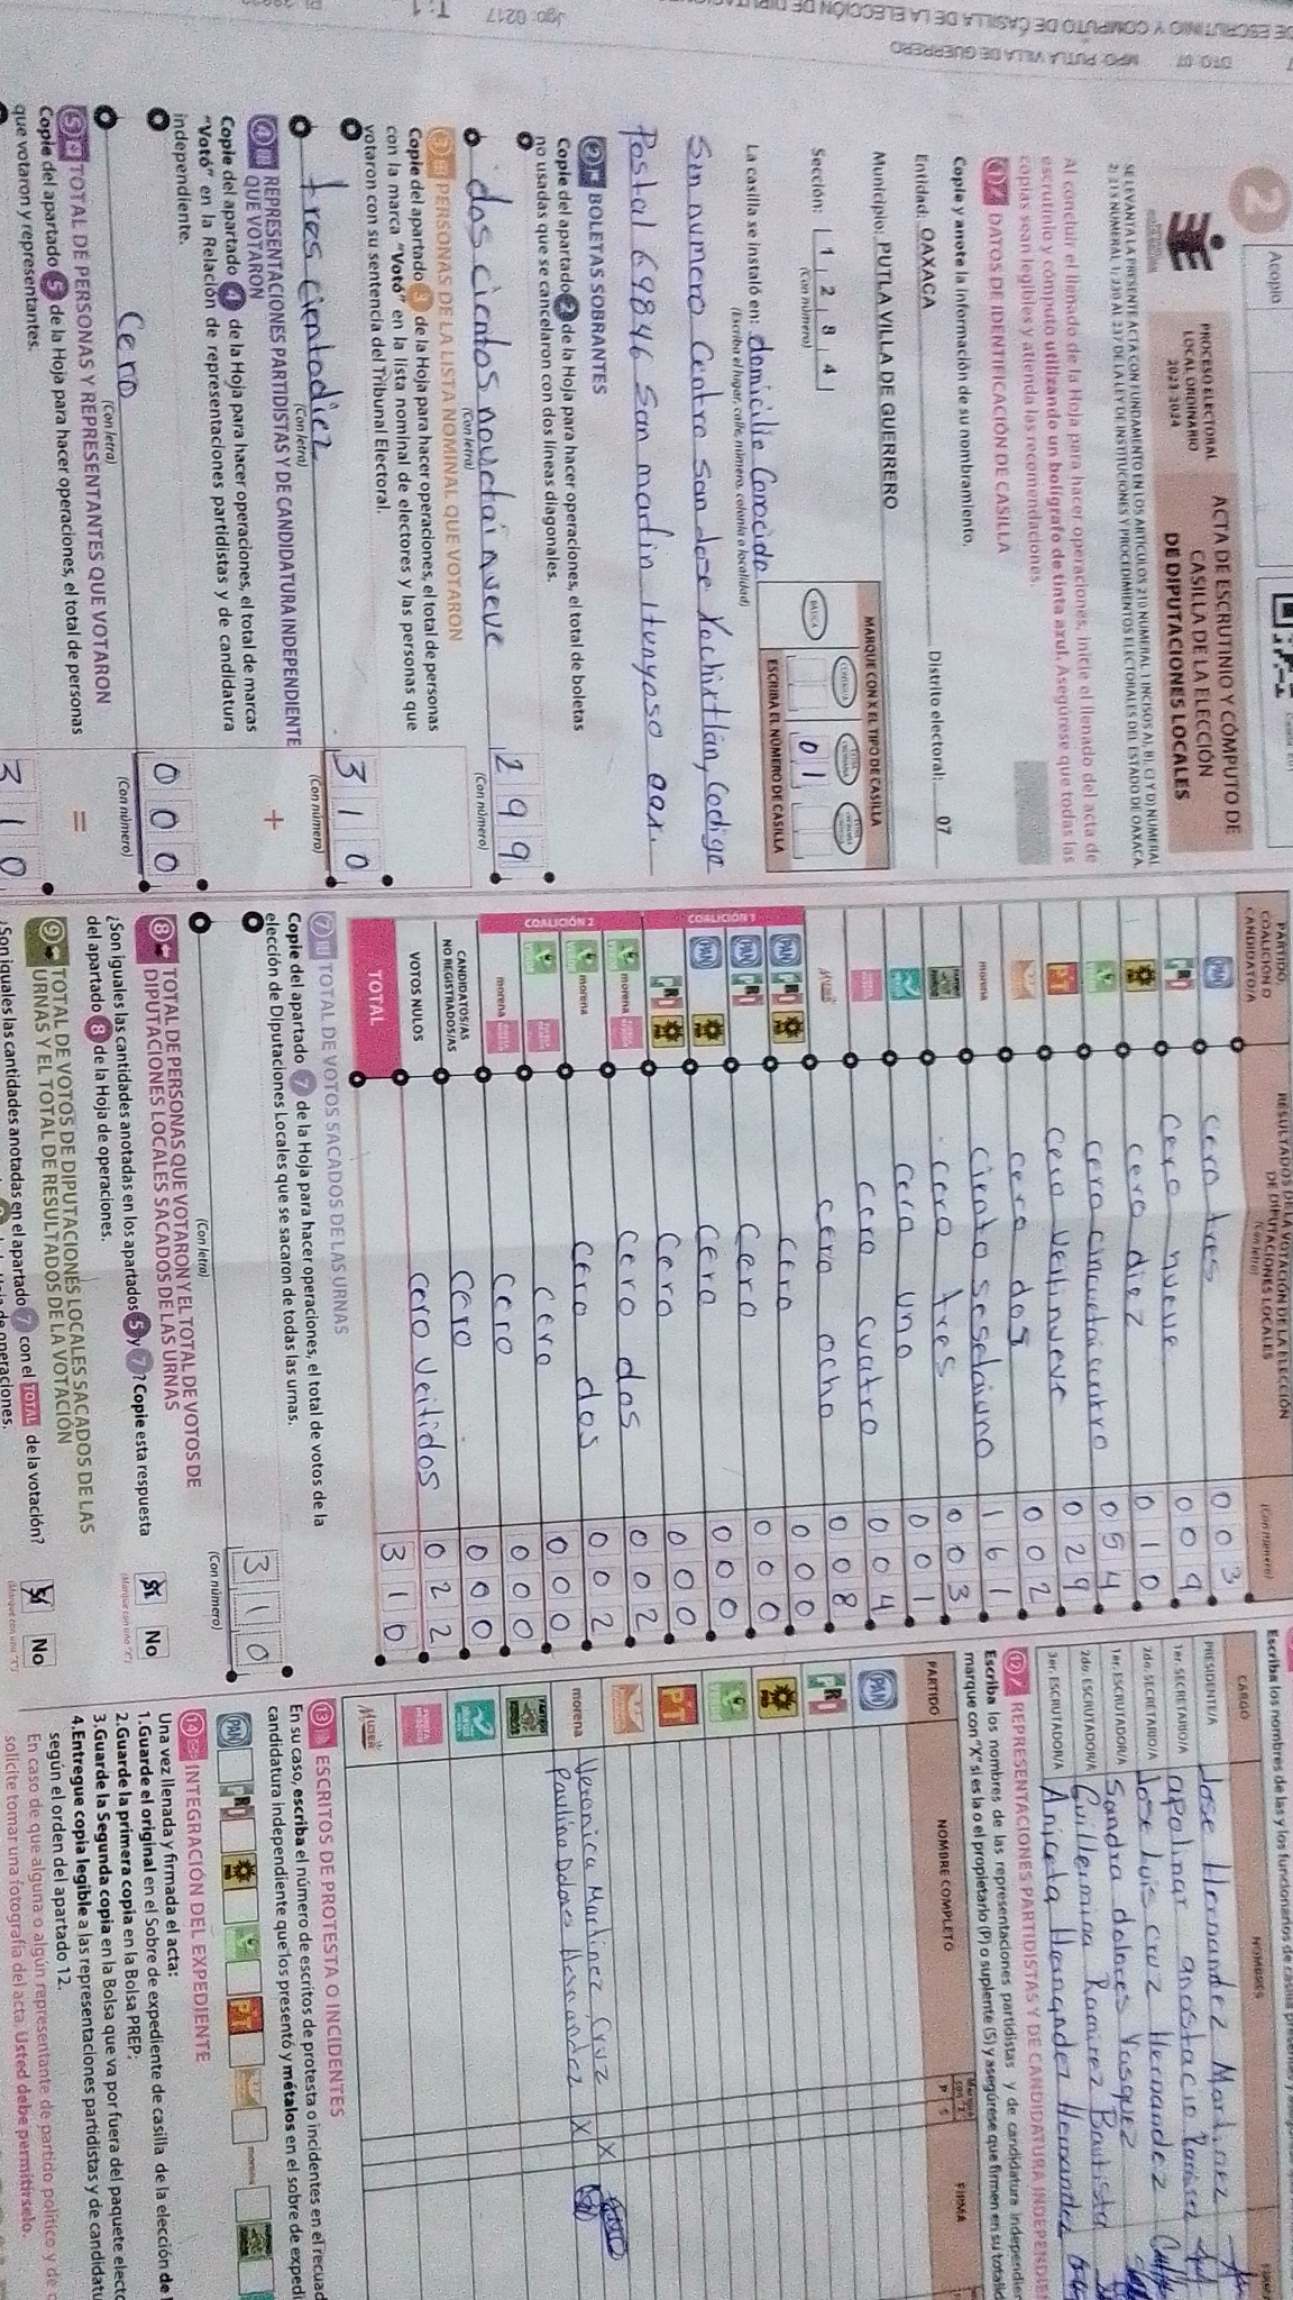 DE ESCRUTINIO Y COMPUTO DE CASILLA DE LA ELECCIÓN DE
DTO: 07 MPO: PUTLA VILLA DE GUERRERO
Jgo: 0217
T: 1
2
Acopio
PROCESO ELECTORAL
LOCAL ORDINARIO
2023-2024
ACTA DE ESCRUTINIO Y CÓMPUTO DE
CASILLA DE LA ELECCIÓN
DE DIPUTACIONES LOCALES
Al concluir el llenado de la Hoja para hacer operaciones, inicie el llenado del acta de
escrutinio y cómputo utilizando un bolígrafo de tinta azul. Asegúrese que todas las
copias sean legibles y atienda las recomendaciones.
1 DATOS DE IDENTIFICACIÓN DE CASILLA
Copie y anote la información de su nombramiento.
Entidad: OAXACA Distrito electoral: 07
Municipio: PUTLA VILLA DE GUERRERO
Sección: 1 2 8 4
(Con número)
MARQUE CON X EL TIPO DE CASILLA
BÁSICA
ESCRIBA EL NÚMERO DE CASILLA
0 1
La casilla se instaló en: domicilio Conocido
(Escriba el lugar, calle, número, colonia o localidad)
Sin numero Centro San Jose Xochixtlán, Codigo
Postal 69846 San martin Itunyoso oax.
2 BOLETAS SOBRANTES
Copie del apartado 2 de la Hoja para hacer operaciones, el total de boletas
no usadas que se cancelaron con dos líneas diagonales.
dos cientos noventai nueve 2 9 9
(Con letra) (Con número)
3 PERSONAS DE LA LISTA NOMINAL QUE VOTARON
Copie del apartado 3 de la Hoja para hacer operaciones, el total de personas
con la marca "Votó" en la lista nominal de electores y las personas que
votaron con su sentencia del Tribunal Electoral.
tres cientodiez 3 1 0
(Con letra) (Con número)
4 REPRESENTACIONES PARTIDISTAS Y DE CANDIDATURA INDEPENDIENTE
QUE VOTARON +
Copie del apartado 4 de la Hoja para hacer operaciones, el total de marcas
"Votó" en la Relación de representaciones partidistas y de candidatura
independiente.
Cero 0 0 0
(Con letra) (Con número)
5 TOTAL DE PERSONAS Y REPRESENTANTES QUE VOTARON =
Copie del apartado 5 de la Hoja para hacer operaciones, el total de personas
que votaron y representantes.
3 1 0
PARTIDO,
COALICIÓN O
CANDIDATO/A
RESULTADOS DE LA VOTACIÓN DE LA ELECCIÓN
DE DIPUTACIONES LOCALES
(Con letra) (Con número)
PAN cero tres 0 0 3
PRI Cero nueve 0 0 9
PRD cero diez 0 1 0
VERDE cero cincuentaicuatro 0 5 4
PT Cero Veitinueve 0 2 9
cero dos 0 0 2
morena Ciento seselaiuno 1 6 1
cero tres 0 0 3
Cero uno 0 0 1
Cero cuatro 0 0 4
MUJER cero ocho 0 0 8
COALICIÓN 1
PAN PRI PRD cero 0 0 0
PAN PRI Cero 0 0 0
PAN PRD Cero 0 0 0
PRI PRD Cero 0 0 0
COALICIÓN 2
VERDE morena cero dos 0 0 2
VERDE morena cero dos 0 0 2
VERDE cero 0 0 0
morena Cero 0 0 0
CANDIDATOS/AS
NO REGISTRADOS/AS Cero 0 0 0
VOTOS NULOS Cero Veitidos 0 2 2
TOTAL 3 1 0
7 TOTAL DE VOTOS SACADOS DE LAS URNAS
Copie del apartado 7 de la Hoja para hacer operaciones, el total de votos de la
elección de Diputaciones Locales que se sacaron de todas las urnas.
3 1 0
(Con letra) (Con número)
8 TOTAL DE PERSONAS QUE VOTARON Y EL TOTAL DE VOTOS DE
DIPUTACIONES LOCALES SACADOS DE LAS URNAS
¿Son iguales las cantidades anotadas en los apartados 5 y 7? Copie esta respuesta
del apartado 8 de la Hoja de operaciones.
Sí No
(Marque con una "X")
9 TOTAL DE VOTOS DE DIPUTACIONES LOCALES SACADOS DE LAS
URNAS Y EL TOTAL DE RESULTADOS DE LA VOTACIÓN
¿Son iguales las cantidades anotadas en el apartado 7 con el TOTAL de la votación?
Sí No
(Marque con una "X")
Escriba los nombres de las y los funcionarios de casilla presentes
CARGO NOMBRES
PRESIDENTE/A Jose Hernandez Martinez
1er. SECRETARIO/A apolinar anastacio Ramirez
2do. SECRETARIO/A Jose luis cruz Hernandez
1er. ESCRUTADOR/A Sandra dolores Vasquez
2do. ESCRUTADOR/A Guillermina Ramirez Bautista
3er. ESCRUTADOR/A Aniceta Hernandez Hernandez
12 REPRESENTACIONES PARTIDISTAS Y DE CANDIDATURA INDEPENDIEN
Escriba los nombres de las representaciones partidistas y de candidatura independien
marque con "X" si es la o el propietario (P) o suplente (S) y asegúrese que firmen en su totalid
PARTIDO NOMBRE COMPLETO P S FIRMA
PAN
PRI
PRD
VERDE
PT
morena Veronica Martinez Cruz X
Paulino Dolores Hernandez X
MUJER
13 ESCRITOS DE PROTESTA O INCIDENTES
En su caso, escriba el número de escritos de protesta o incidentes en el recuad
candidatura independiente que los presentó y métalos en el sobre de expedi
PAN PRI PRD VERDE PT morena
14 INTEGRACIÓN DEL EXPEDIENTE
Una vez llenada y firmada el acta:
1.Guarde el original en el Sobre de expediente de casilla de la elección de
2.Guarde la primera copia en la Bolsa PREP.
3.Guarde la Segunda copia en la Bolsa que va por fuera del paquete elect
4.Entregue copia legible a las representaciones partidistas y de candidatu
según el orden del apartado 12.
En caso de que alguna o algún representante de partido político y de c
solicite tomar una fotografía del acta. Usted debe permitírselo.